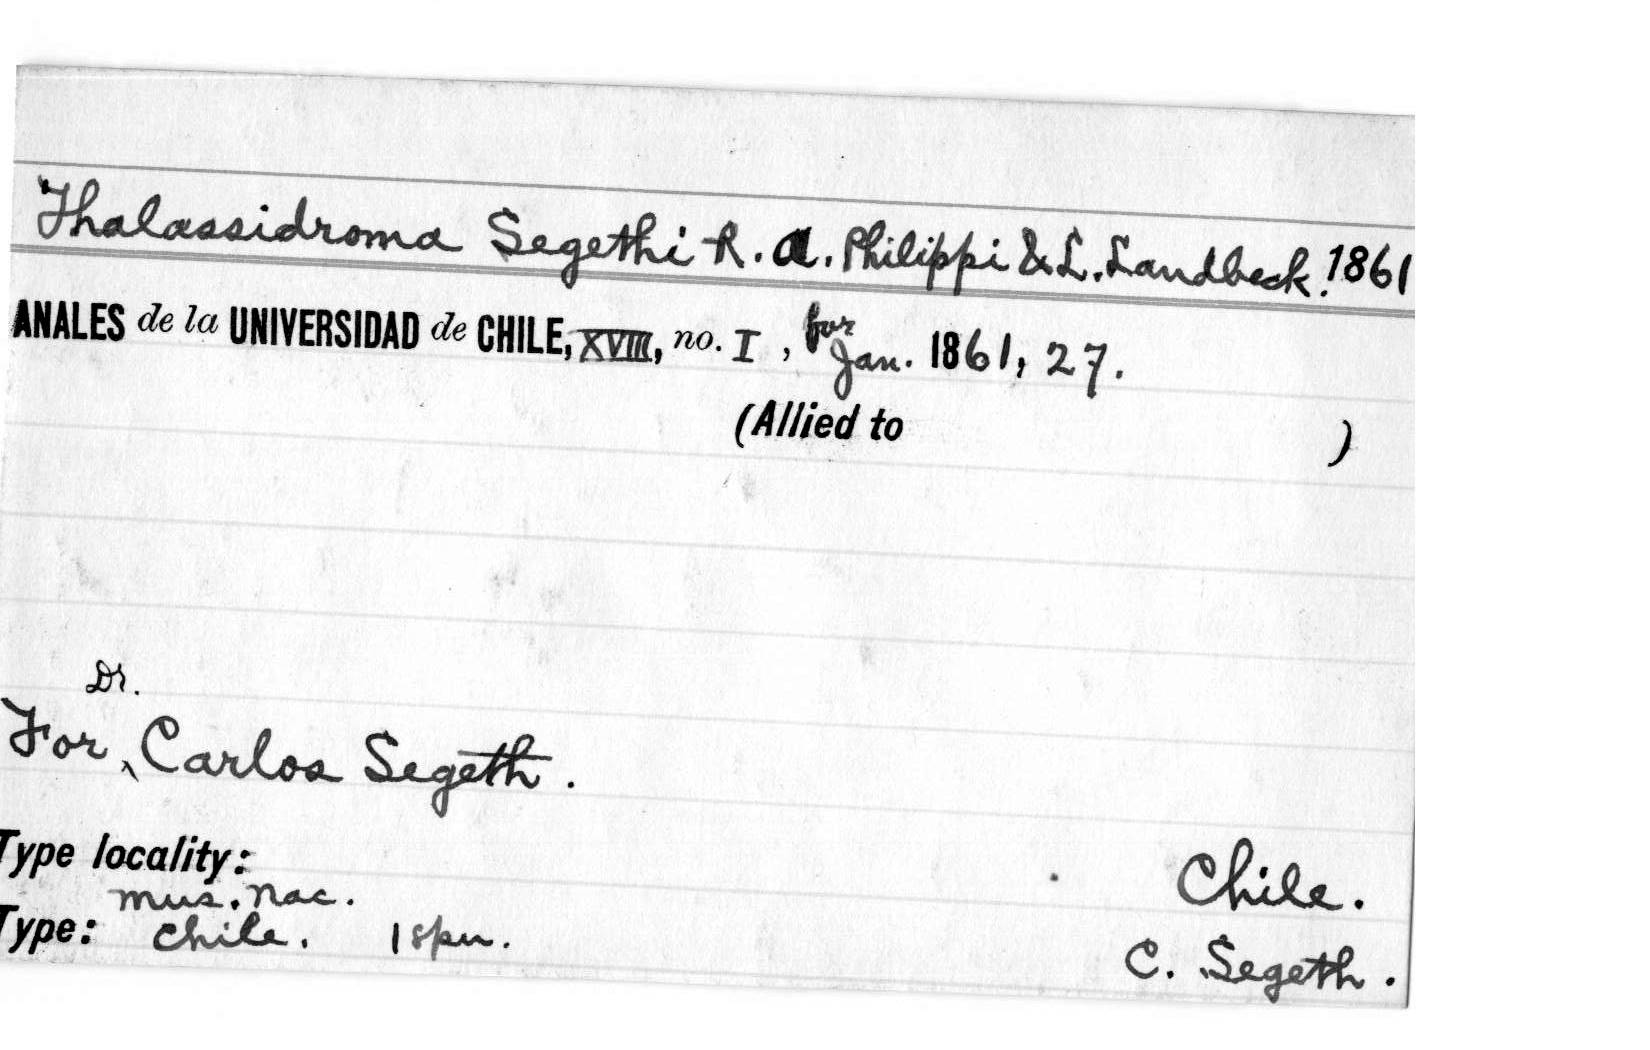 Thalassidroma Segethi R. A. Philippi & L. Landbeck. 1861
ANALES de la UNIVERSIDAD de CHILE, XVIII, no. I, for Jan. 1861, 27.
(Allied to )
Dr.
For Carlos Segeth.
Type locality: Chile.
Mus. Nac.
Type: Chile. 1 spn. C. Segeth.